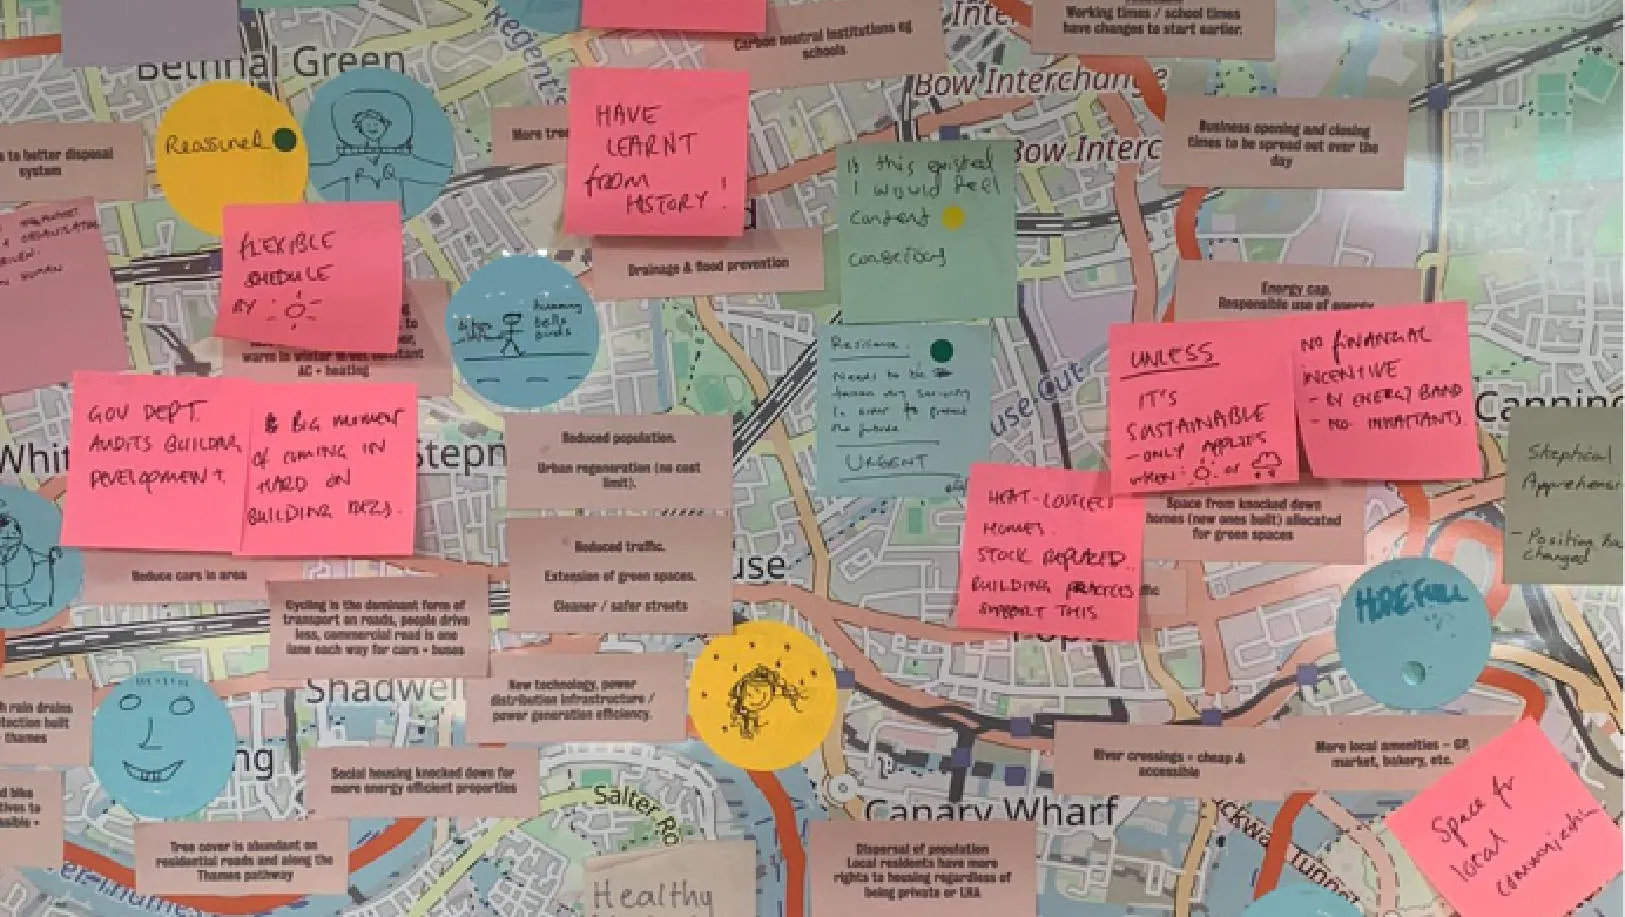 Working times / school times
have changes to start earlier.
Carbon neutral institutions eg
schools
Bethnal Green
Regent's
Bow Interchange
Bow Interc
Reassured
More tree
HAVE
LEARNT
FROM
HISTORY!
If this existed
I would feel
Content
Business opening and closing
times to be spread out over the
day
s to better disposal
system
+ ORGANISATION
HUMAN
FLEXIBLE
SCHEDULE
BY
Drainage & flood prevention
Energy cap.
Responsible use of energy
warm in winter
AC + heating
Running
bells
Resilience.
Needs to be
in order to protect
the future
URGENT
UNLESS
IT'S
SUSTAINABLE
- ONLY APPLIES
WHEN: or
NO FINANCIAL
INCENTIVE
- BY ENERGY BAND
- NO. INHABITANTS
Canning
GOV DEPT.
AUDITS BUILDING
DEVELOPMENT.
BIG MOVEMENT
OF COMING IN
HARD ON
BUILDING REGS.
Whit
Stepn
Reduced population.
Urban regeneration (no cost
limit).
Skeptical
- Position
changed
HEAT-
HOMES.
STOCK REPLACED.
BUILDING PRACTICES
SUPPORT THIS
Space from knocked down
homes (new ones built) allocated
for green spaces
Reduce cars in area
Reduced traffic.
Extension of green spaces.
Cleaner / safer streets
use
Cycling is the dominant form of
transport on roads, people drive
less, commercial road is one
lane each way for cars + buses
HOPEFULL
Shadwell
New technology, power
distribution infrastructure /
power generation efficiency.
h rain drains
built
thames
ng
Social housing knocked down for
more energy efficient properties
River crossings = cheap &
accessible
More local amenities - GP,
market, bakery, etc.
d bike
Salter Ro
Canary Wharf
Space for
local
Tree cover is abundant on
residential roads and along the
Thames pathway
Dispersal of population
Local residents have more
rights to housing regardless of
being private or LHA
Healthy